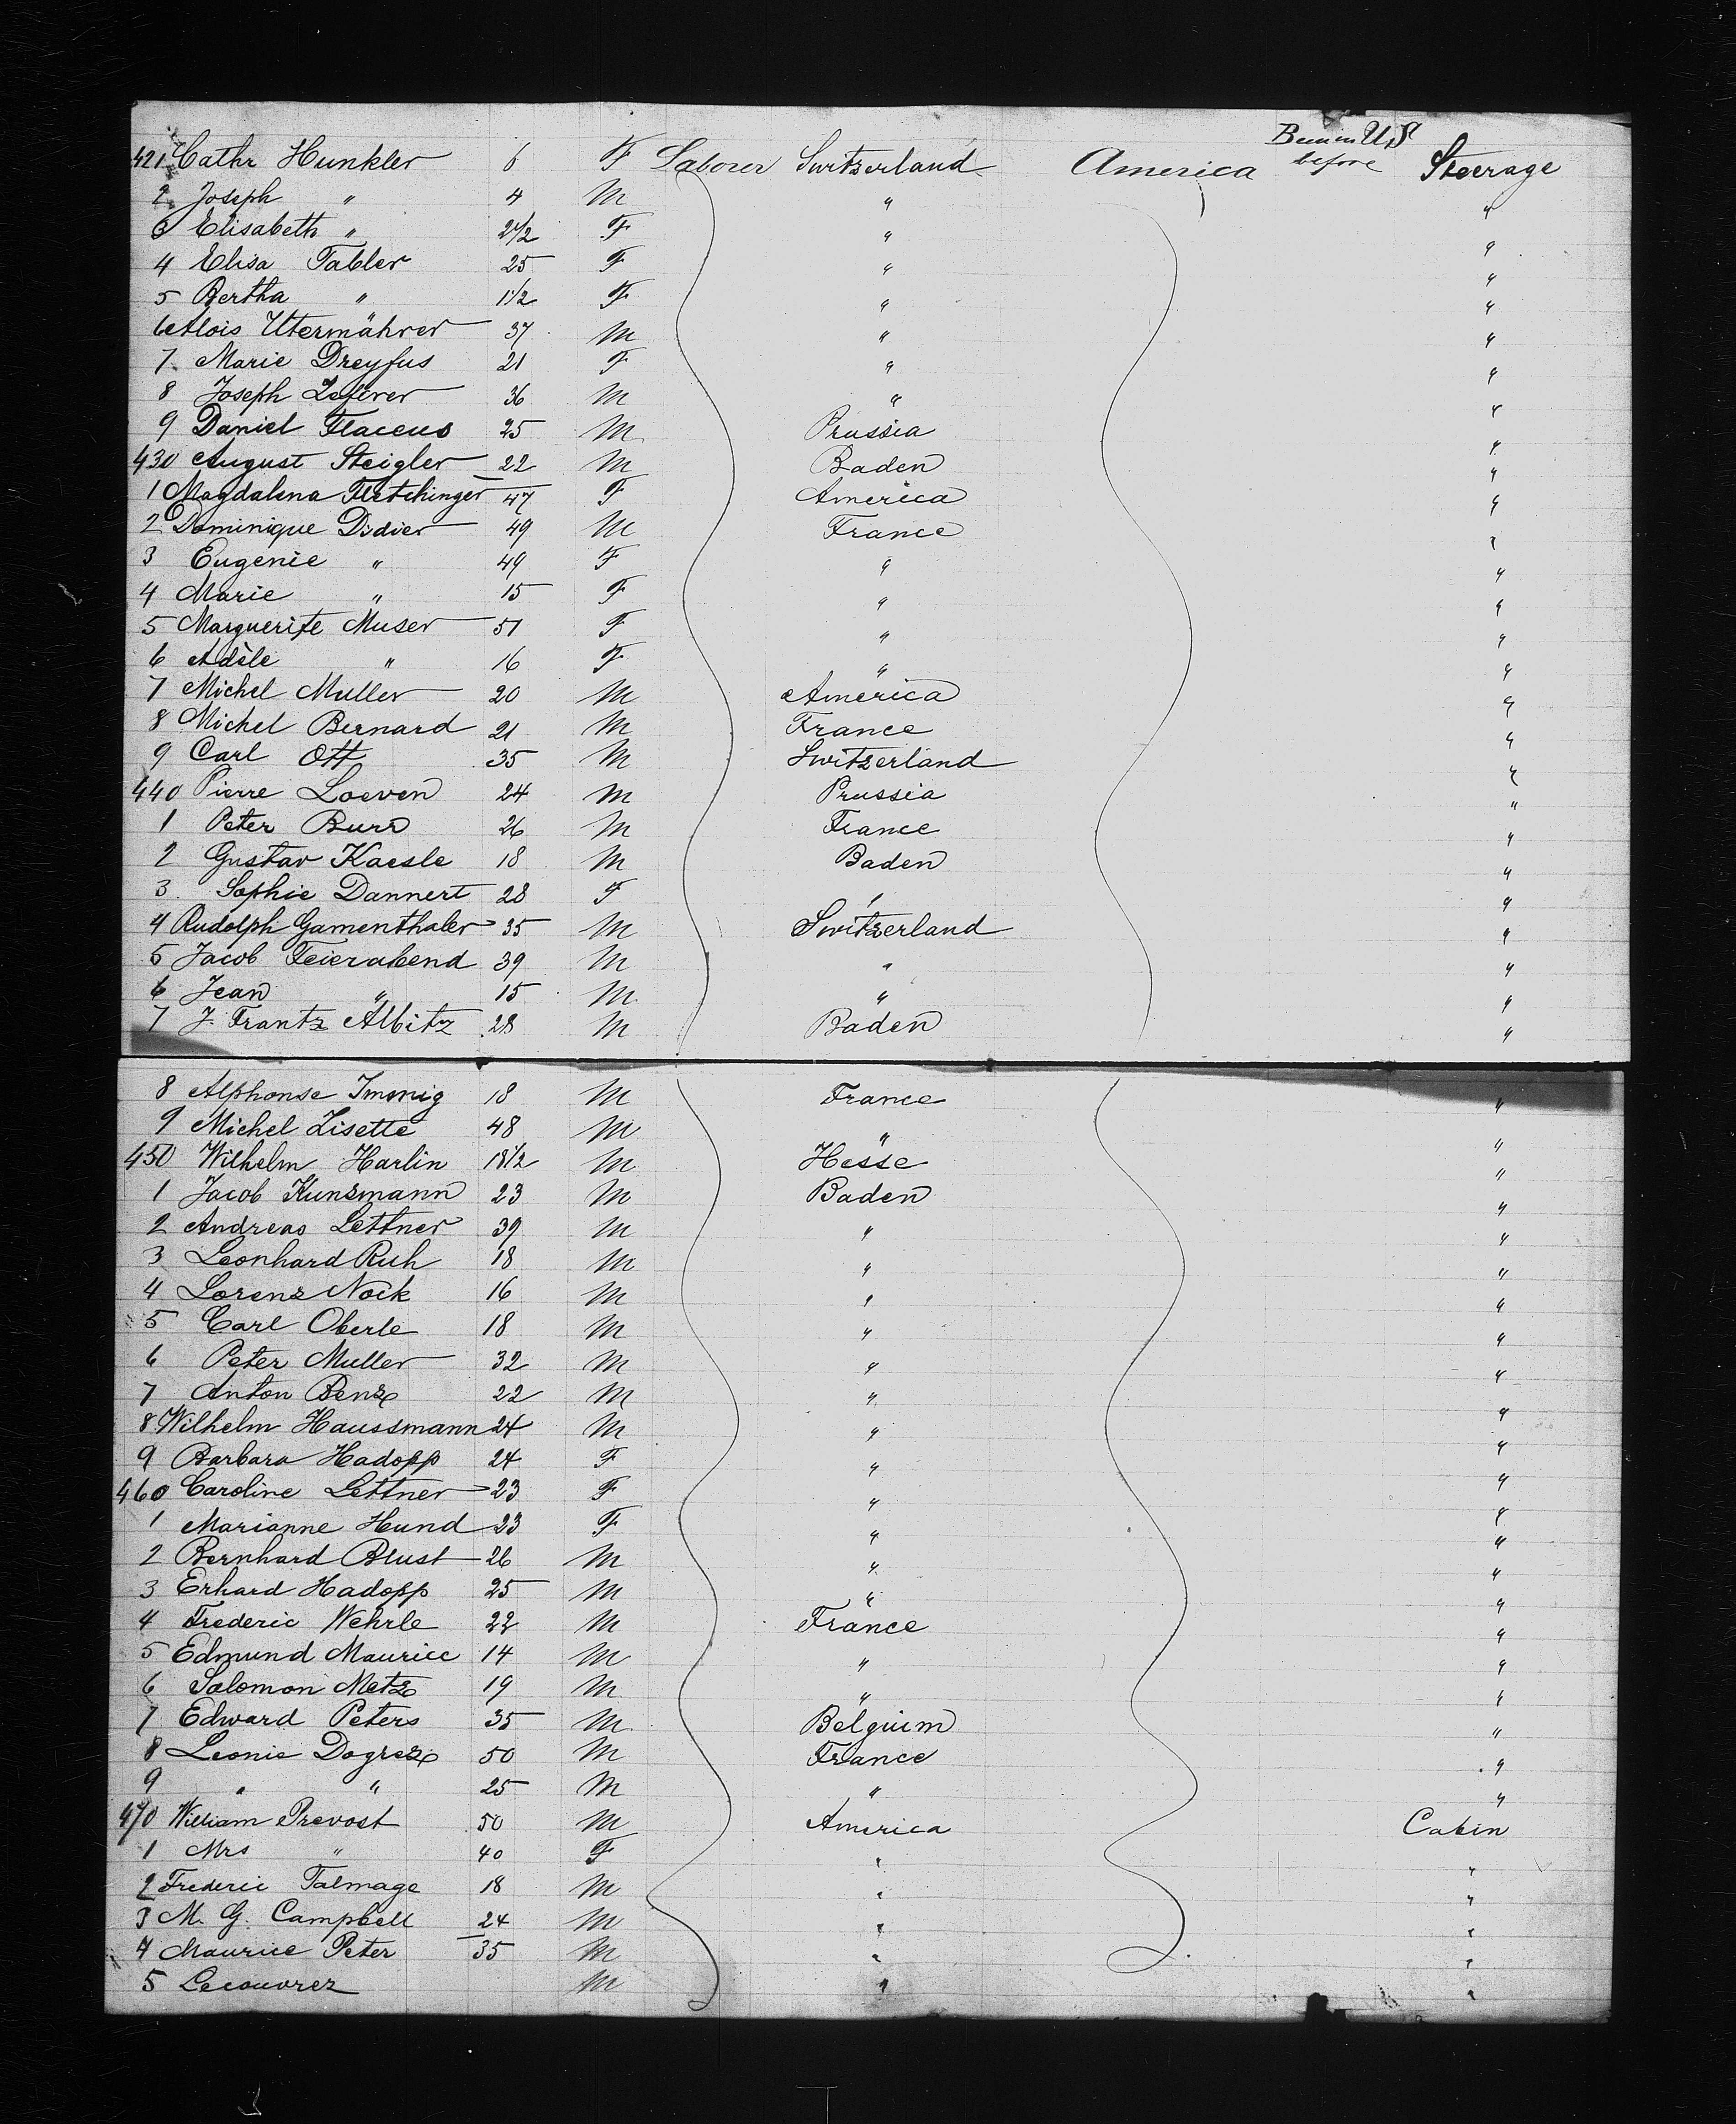 Been in U,S
before
421 Cathr Hunkler 6 F Laborer Switzerland America Steerage
2 Joseph " 4 M " "
3 Elisabeth " 2 1/2 F " "
4 Elisa Tabler 25 F " "
5 Bertha " 1 1/2 F " "
6 Alois Utermährer 37 M " "
7 Marie Dreyfus 21 F " "
8 Joseph Lefever 36 M " "
9 Daniel Flaceus 25 M Prussia "
430 August Steigler 22 M Baden "
1 Magdalena Fletchinger 47 F America "
2 Dominique Didier 49 M France "
3 Eugenie " 49 F " "
4 Marie " 15 F " "
5 Marguerite Muser 51 F " "
6 Adèle " 16 F " "
7 Michel Muller 20 M America "
8 Michel Bernard 21 M France "
9 Carl Ott 35 M Switzerland "
440 Pierre Loeven 24 M Prussia "
1 Peter Burr 26 M France "
2 Gustav Kaesle 18 M Baden "
3 Sophie Dannert 28 F " "
4 Rudolph Gamenthaler 35 M Switzerland "
5 Jacob Feierabend 39 M " "
6 Jean " 15 M " "
7 J. Frantz Albitz 28 M Baden "
8 Alphonse Immig 18 M France "
9 Michel Lisette 48 M " "
450 Wilhelm Harlin 18 1/2 M Hesse "
1 Jacob Kunsmann 23 M Baden "
2 Andreas Lettner 39 M " "
3 Leonhard Ruh 18 M " "
4 Lorenz Nock 16 M " "
5 Carl Oberle 18 M " "
6 Peter Muller 32 M " "
7 Anton Benz 22 M " "
8 Wilhelm Haussmann 24 M " "
9 Barbara Hadopp 24 F " "
460 Caroline Lettner 23 F " "
1 Marianne Hund 23 F " "
2 Bernhard Blust 26 M " "
3 Erhard Hadopp 25 M " "
4 Frederic Wehrle 22 M France "
5 Edmund Maurice 14 M " "
6 Salomon Metz 19 M " "
7 Edward Peters 35 M Belgium "
8 Leonie Dogrez 50 M France "
9 " " 25 M " "
470 William Prevost 50 M America Cabin
1 Mrs " 40 F " "
2 Frederic Talmage 18 M " "
3 M. G. Campbell 24 M " "
4 Maurice Peter 35 M " "
5 Lecouvrez M " "